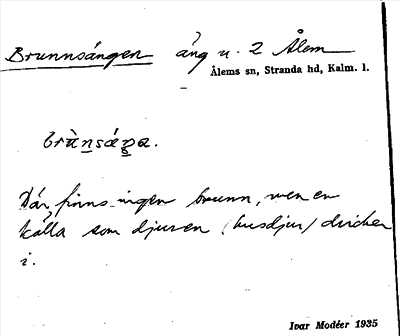 Brunnsängen äng n. 2 Ålem
Ålems sn, Stranda hd, Kalm. l.
Där finns ingen brunn, men en
källa som djuren (husdjur) dricker
i.
Ivar Modéer 1935